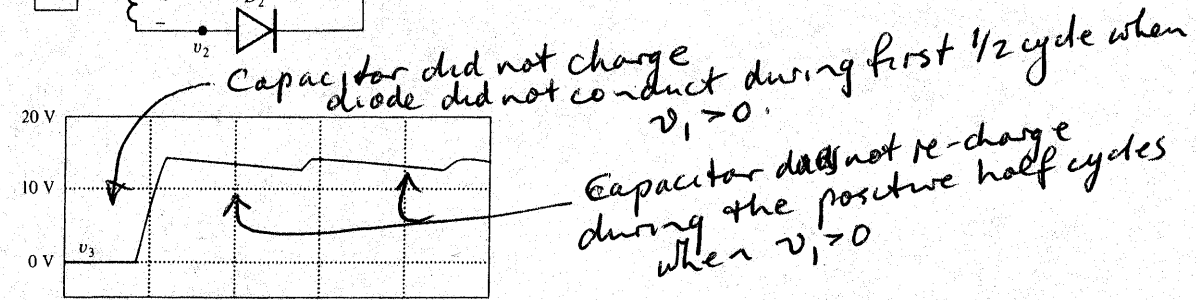 −
v₂
D₂
Capacitor did not charge
diode did not conduct during first 1/2 cycle when
v₁ > 0.
20 V
10 V
v₃
0 V
Capacitor does not re-charge
during the positive half cycles
when v₁ > 0